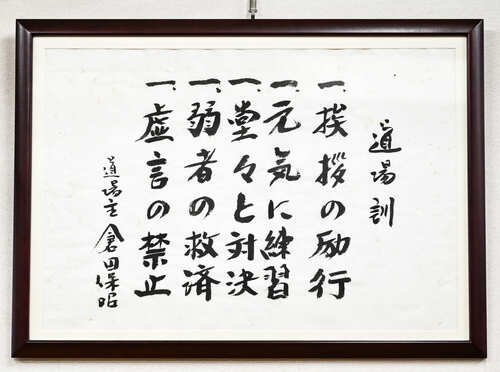 道場訓
一、挨拶の励行
一、元気に練習
一、堂々と対決
一、弱者の救済
一、虚言の禁止
道場主 倉田保昭